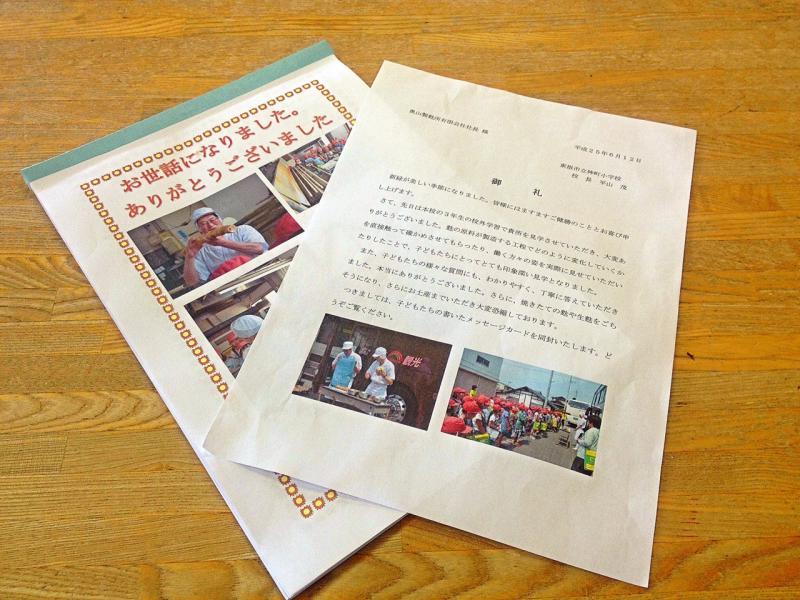 お世話になりました。
ありがとうございました
奥山製麩所有限会社社長 様
平成25年6月12日
東根市立神町小学校
校 長 平山 茂
御 礼
新緑が美しい季節になりました。皆様にはますますご健勝のこととお喜び申
し上げます。
さて、先日は本校の3年生の校外学習で貴所を見学させていただき、大変あ
りがとうございました。麩の原料が製造する工程でどのように変化していくか
を直接触って確かめさせてもらったり、働く方々の姿を実際に見せていただい
たりしたことで、子どもたちにとってとても印象深い見学となりました。
また、子どもたちの様々な質問にも、わかりやすく、丁寧に答えていただき
ました。本当にありがとうございました。さらに、焼きたての麩や生麩をごち
そうになり、さらにお土産までいただき大変恐縮しております。
つきましては、子どもたちの書いたメッセージカードを同封いたします。ど
うぞご覧ください。
観光